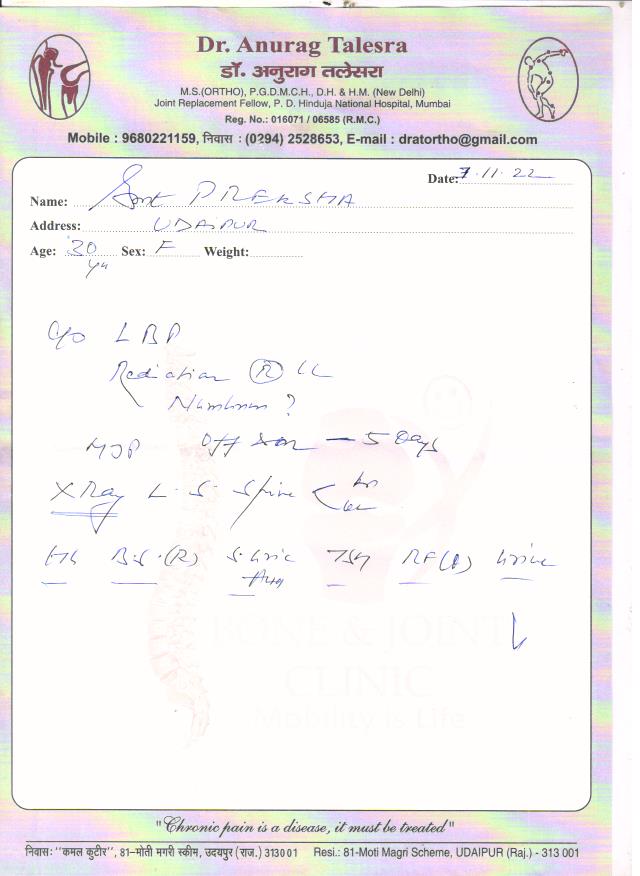 Dr. Anurag Talesra
डॉ. अनुराग तलेसरा
M.S.(ORTHO), P.G.D.M.C.H., D.H. & H.M. (New Delhi)
Joint Replacement Fellow, P. D. Hinduja National Hospital, Mumbai
Reg. No.: 016071 / 06585 (R.M.C.)
Mobile : 9680221159, निवास : (0294) 2528653, E-mail : dratortho@gmail.com
Date: 7.11.22
Name: Smt PREKSHA
Address: UDAIPUR
Age: 30 yrs Sex: F Weight:
c/o LBP
Radiation (R) LL
Numbness ?
off 5 Days
X Ray L.S. Spine < AP
Lat
Hb B.S.(R) S. Uric TSH RF(A) Urine
Acid
BONE & JOINT
CLINIC
Mobility is Life
"Chronic pain is a disease, it must be treated"
निवास: "कमल कुटीर", 81-मोती मगरी स्कीम, उदयपुर (राज.) 313001 Resi.: 81-Moti Magri Scheme, UDAIPUR (Raj.) - 313 001